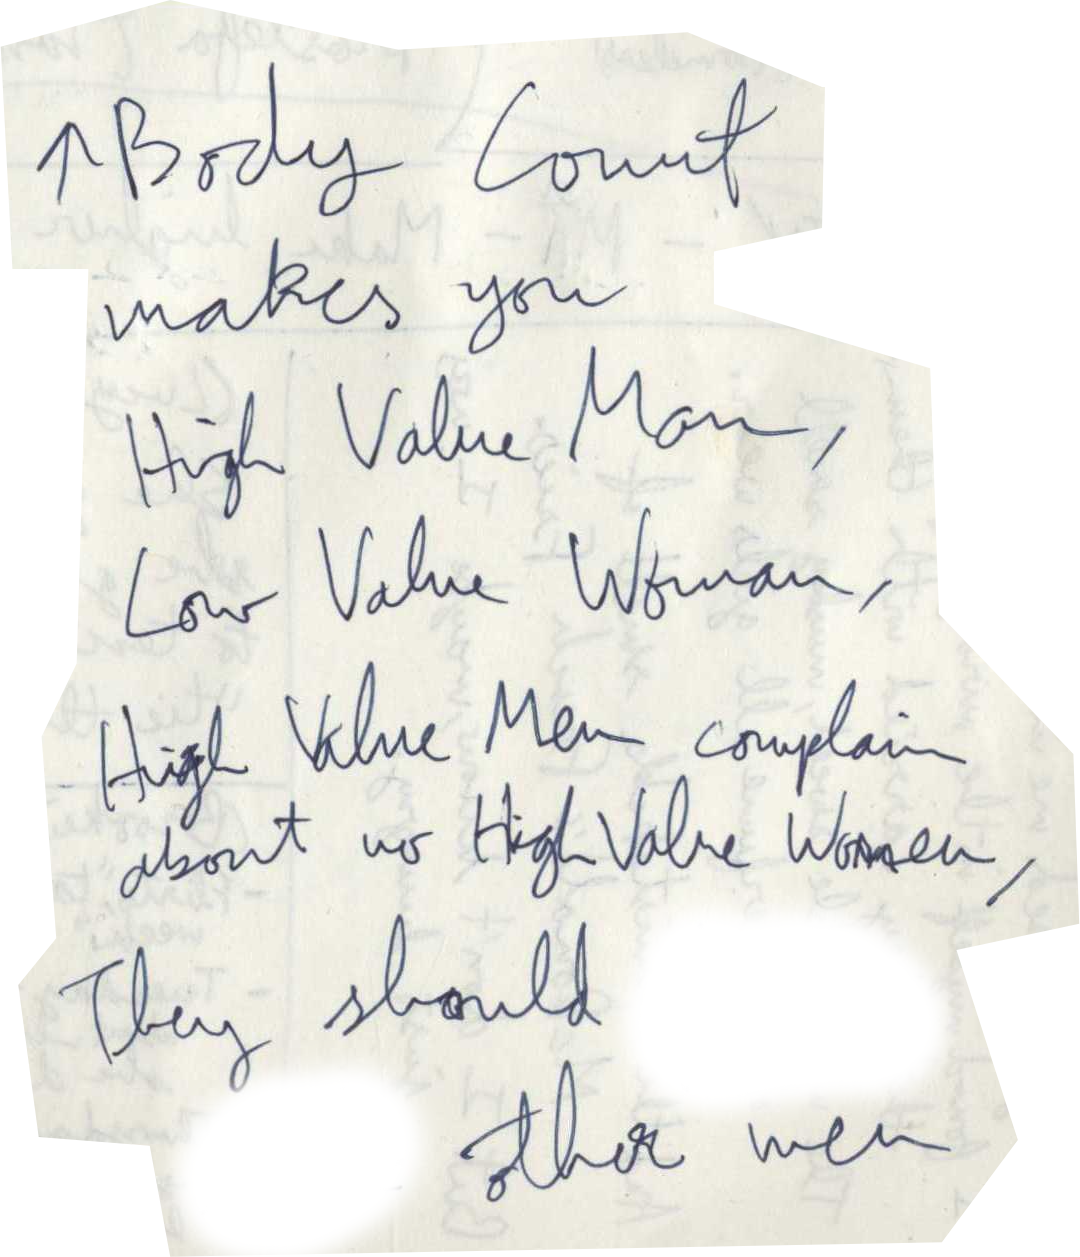 ↑ Body Count
makes you
High Value Man,
Low Value Woman,
High Value Men complain
about no High Value Women,
They should
other men